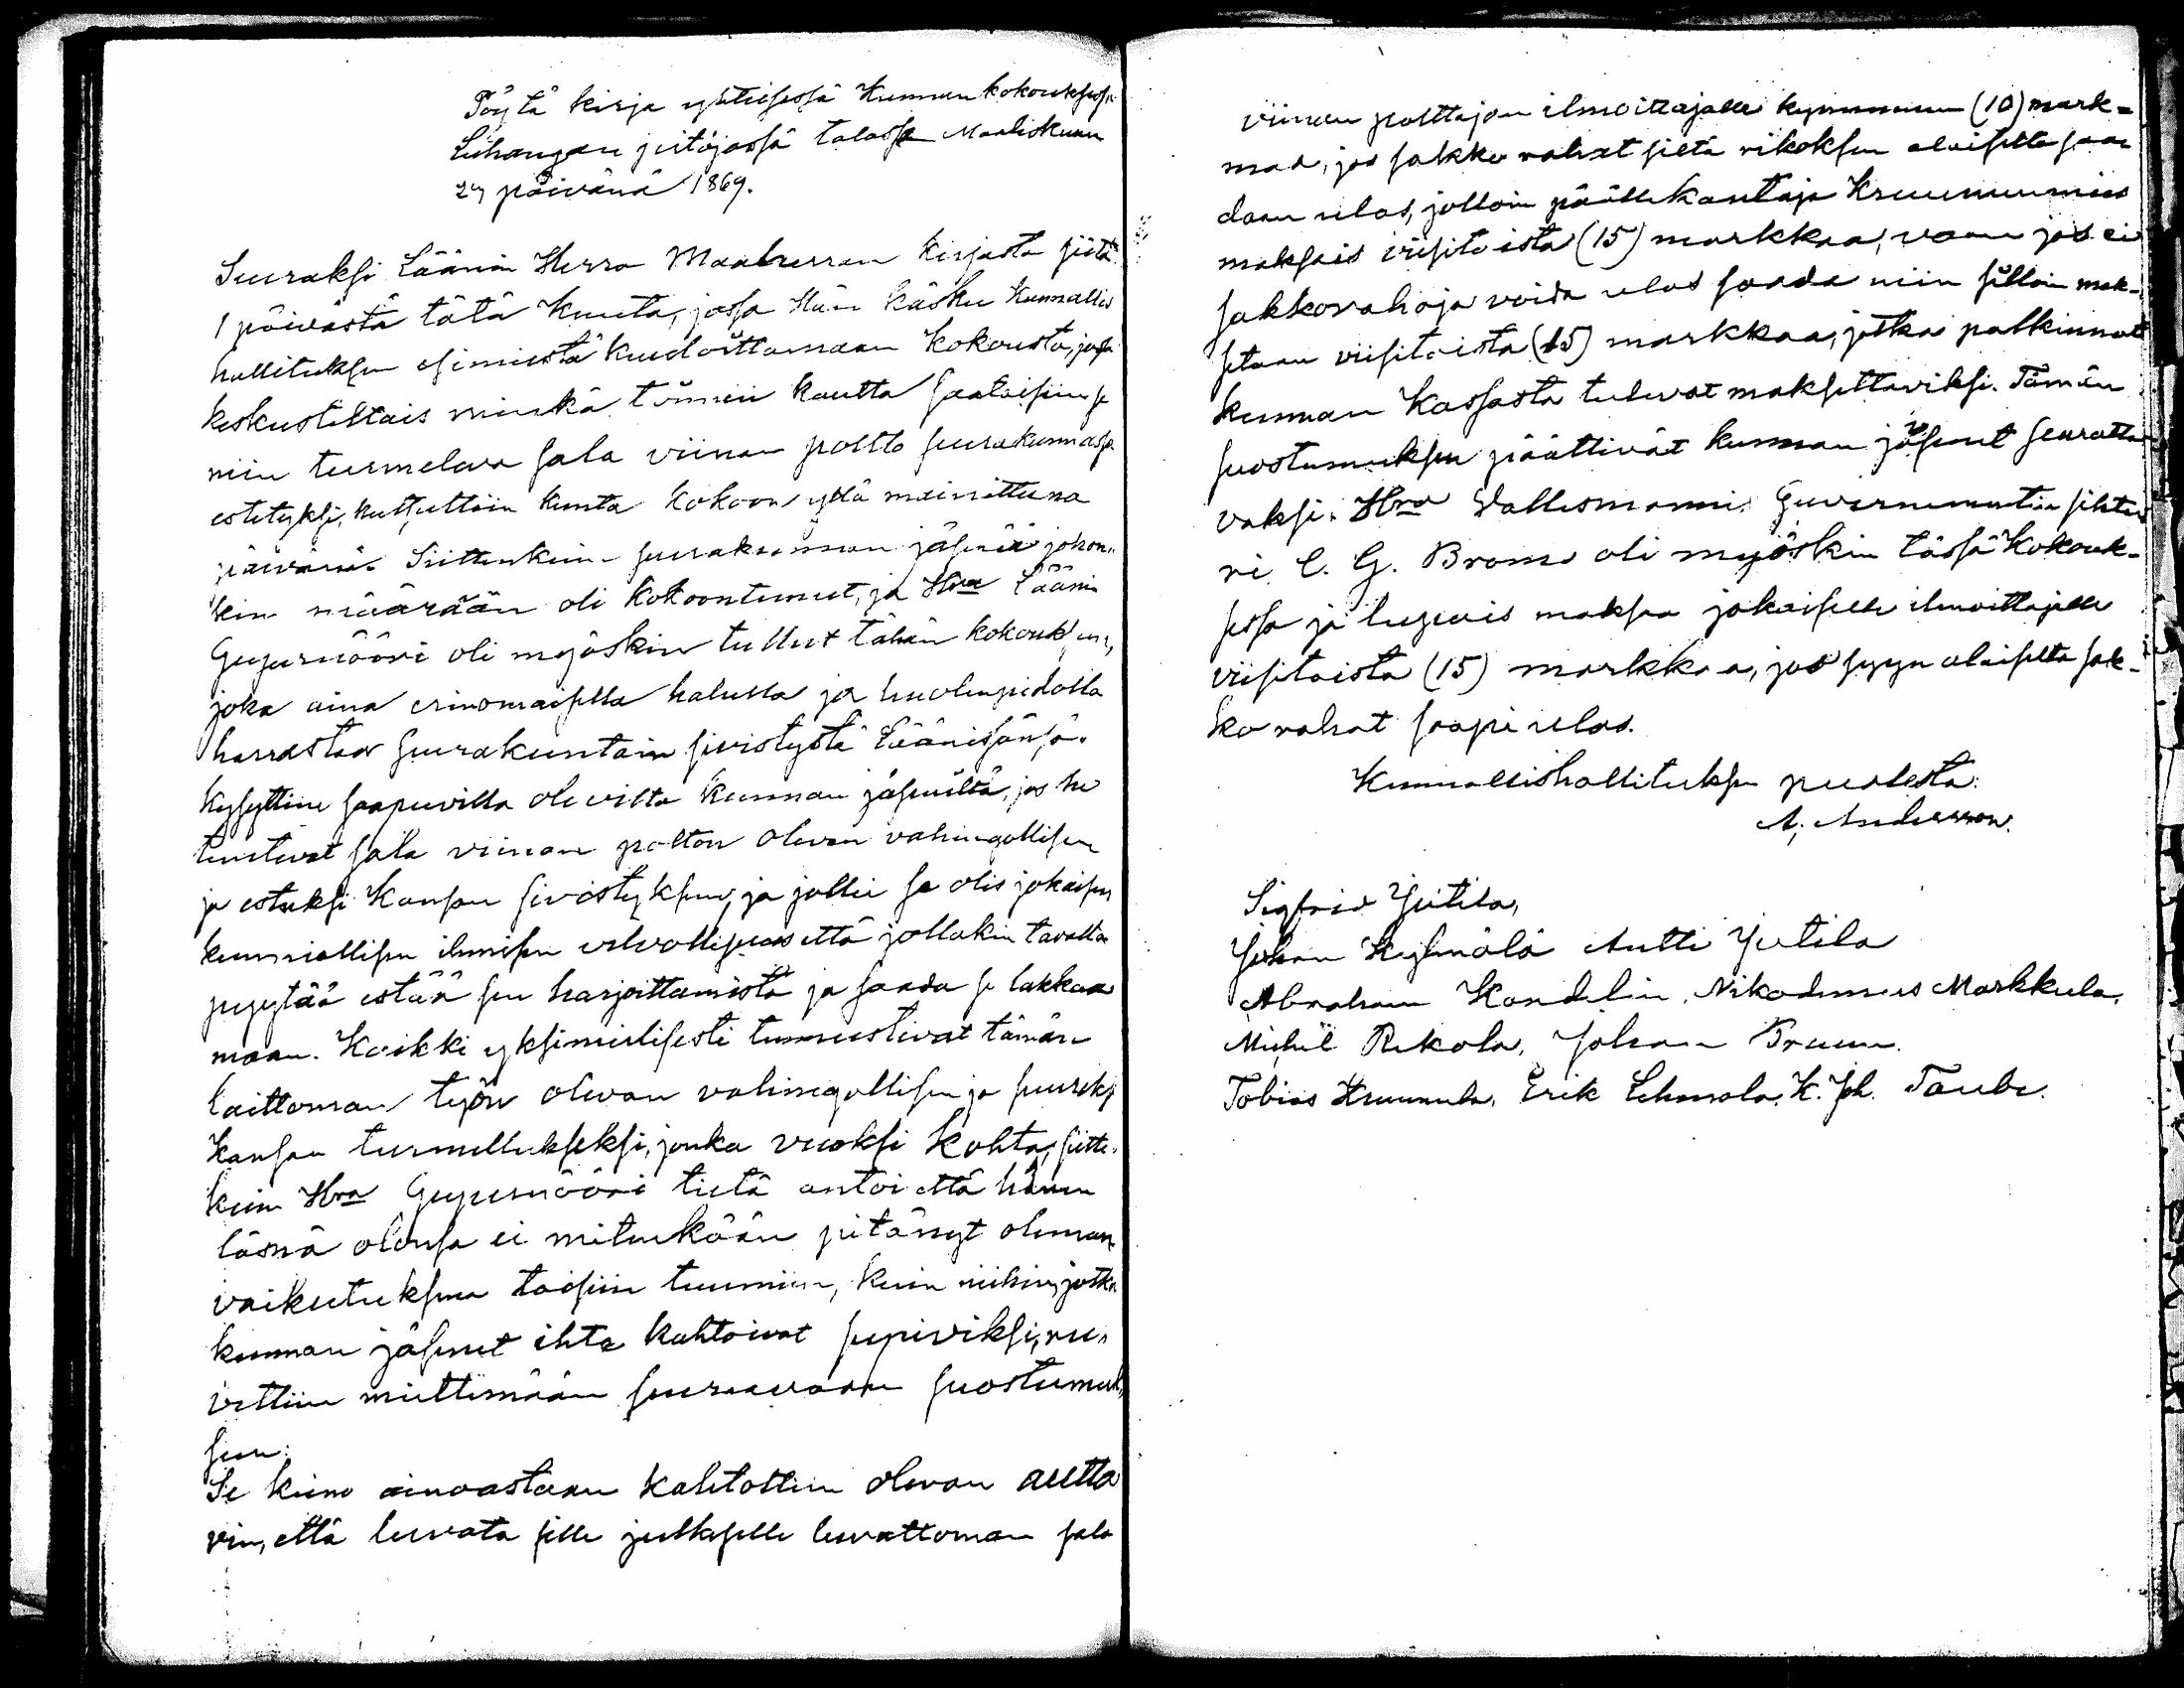 Pöytä kirja yhteisessä Kunnan kokouksessa
Luhangan pitäjässä talossa Maaliskuun
29 päivänä 1869.
Seuraksi Läänin Herra Maaherran kirjasta siitä
1 päivästä tätä kuuta, jossa Hän käsku kunnallis
hallituksen esimiestä kuuloittamaan kokousta, jossa
keskusteltais minkä toimien kautta saataisiin se
niin turmeleva sala viinan poltto seurakunnassa
estetyksi, kutsuttiin kunta kokoon yllä mainittuna
päivänä. Siittenkuin seurakunnan jäseniä johon-
kin määrään oli kokoontunut, ja Hra Lääni
Guvernööri oli myöskin tullut tähän kokouksen,
joka aina erinomaisella halulla ja huolenpidolla
harrastaa seurakuntain sivistystä läänisänsä.
Kysyttiin saapuvilla olevilta kunnan jäseniltä, jos he
tuntevat sala viinan polton olevan vahingollisen
ja esteeksi Kansan sivistyksen, ja jollei se olis jokaisen
kunniallisen ihmisen velvollisuus että jollakin tavalla
pyytää estää sen harjoittamista ja saada se lakkaa
maan. Kaikki yksimielisesti tunnustivat tämän
laittoman työn olevan vahingollisen ja suureksi
Kansan turmellukseksi, jonka vuoksi kohta, sitte-
kuin Hra Guvernööri tietä antoi että hänen
läsnä olonsa ei mitenkään pitänyt oleman
vaikutuksena toisiin tuumiin, kuin niihin, jotka
kunnan jäsenet ihte kahtoivat sopiviksi, ru-
vettiin miettimään seuraavaan suostumuk-
seen:
Se keino ainoastaan kahtottiin olevan autta
vin, että luvata sille julkiselle luvattoman sala
viinan polttajan ilmoittajalle kymmenen (10) mark-
maa, jos sakko rahat siltä rikoksen alaiselta saa-
daan ulos, jolloin päällekantaja Kruunumies
maksais viisitoista (15) markkaa, vaan jos ei
sakkorahoja voida ulos saada niin silloin mak-
setaan viisitoista (15) markkaa, jotka palkinnot
kunnan Kassasta tulevat maksettaviksi. Tämän
suostumuksen päättivät kunnan jäsenet seuratta
vaksi. Hra Vallesmanni, Guvernementin sihtee
ri C. G. Brams oli myöskin tässä kokouk-
sessa ja lupais maksaa jokaiselle ilmoittajalle
viisitoista (15) markkaa, jos syyn alaiselta sak-
ko rahat saapi ulos.
Kunnallishallituksen puolesta:
A. Andersson.
Sigfrid Jutila,
Johan Kylmälä Antti Jutila
Abraham Kandelin, Nikodemus Markkula,
Mickel Rekola, Johan Bruun.
Tobias Kruunula, Erik Lehmola, K. Joh. Taube.